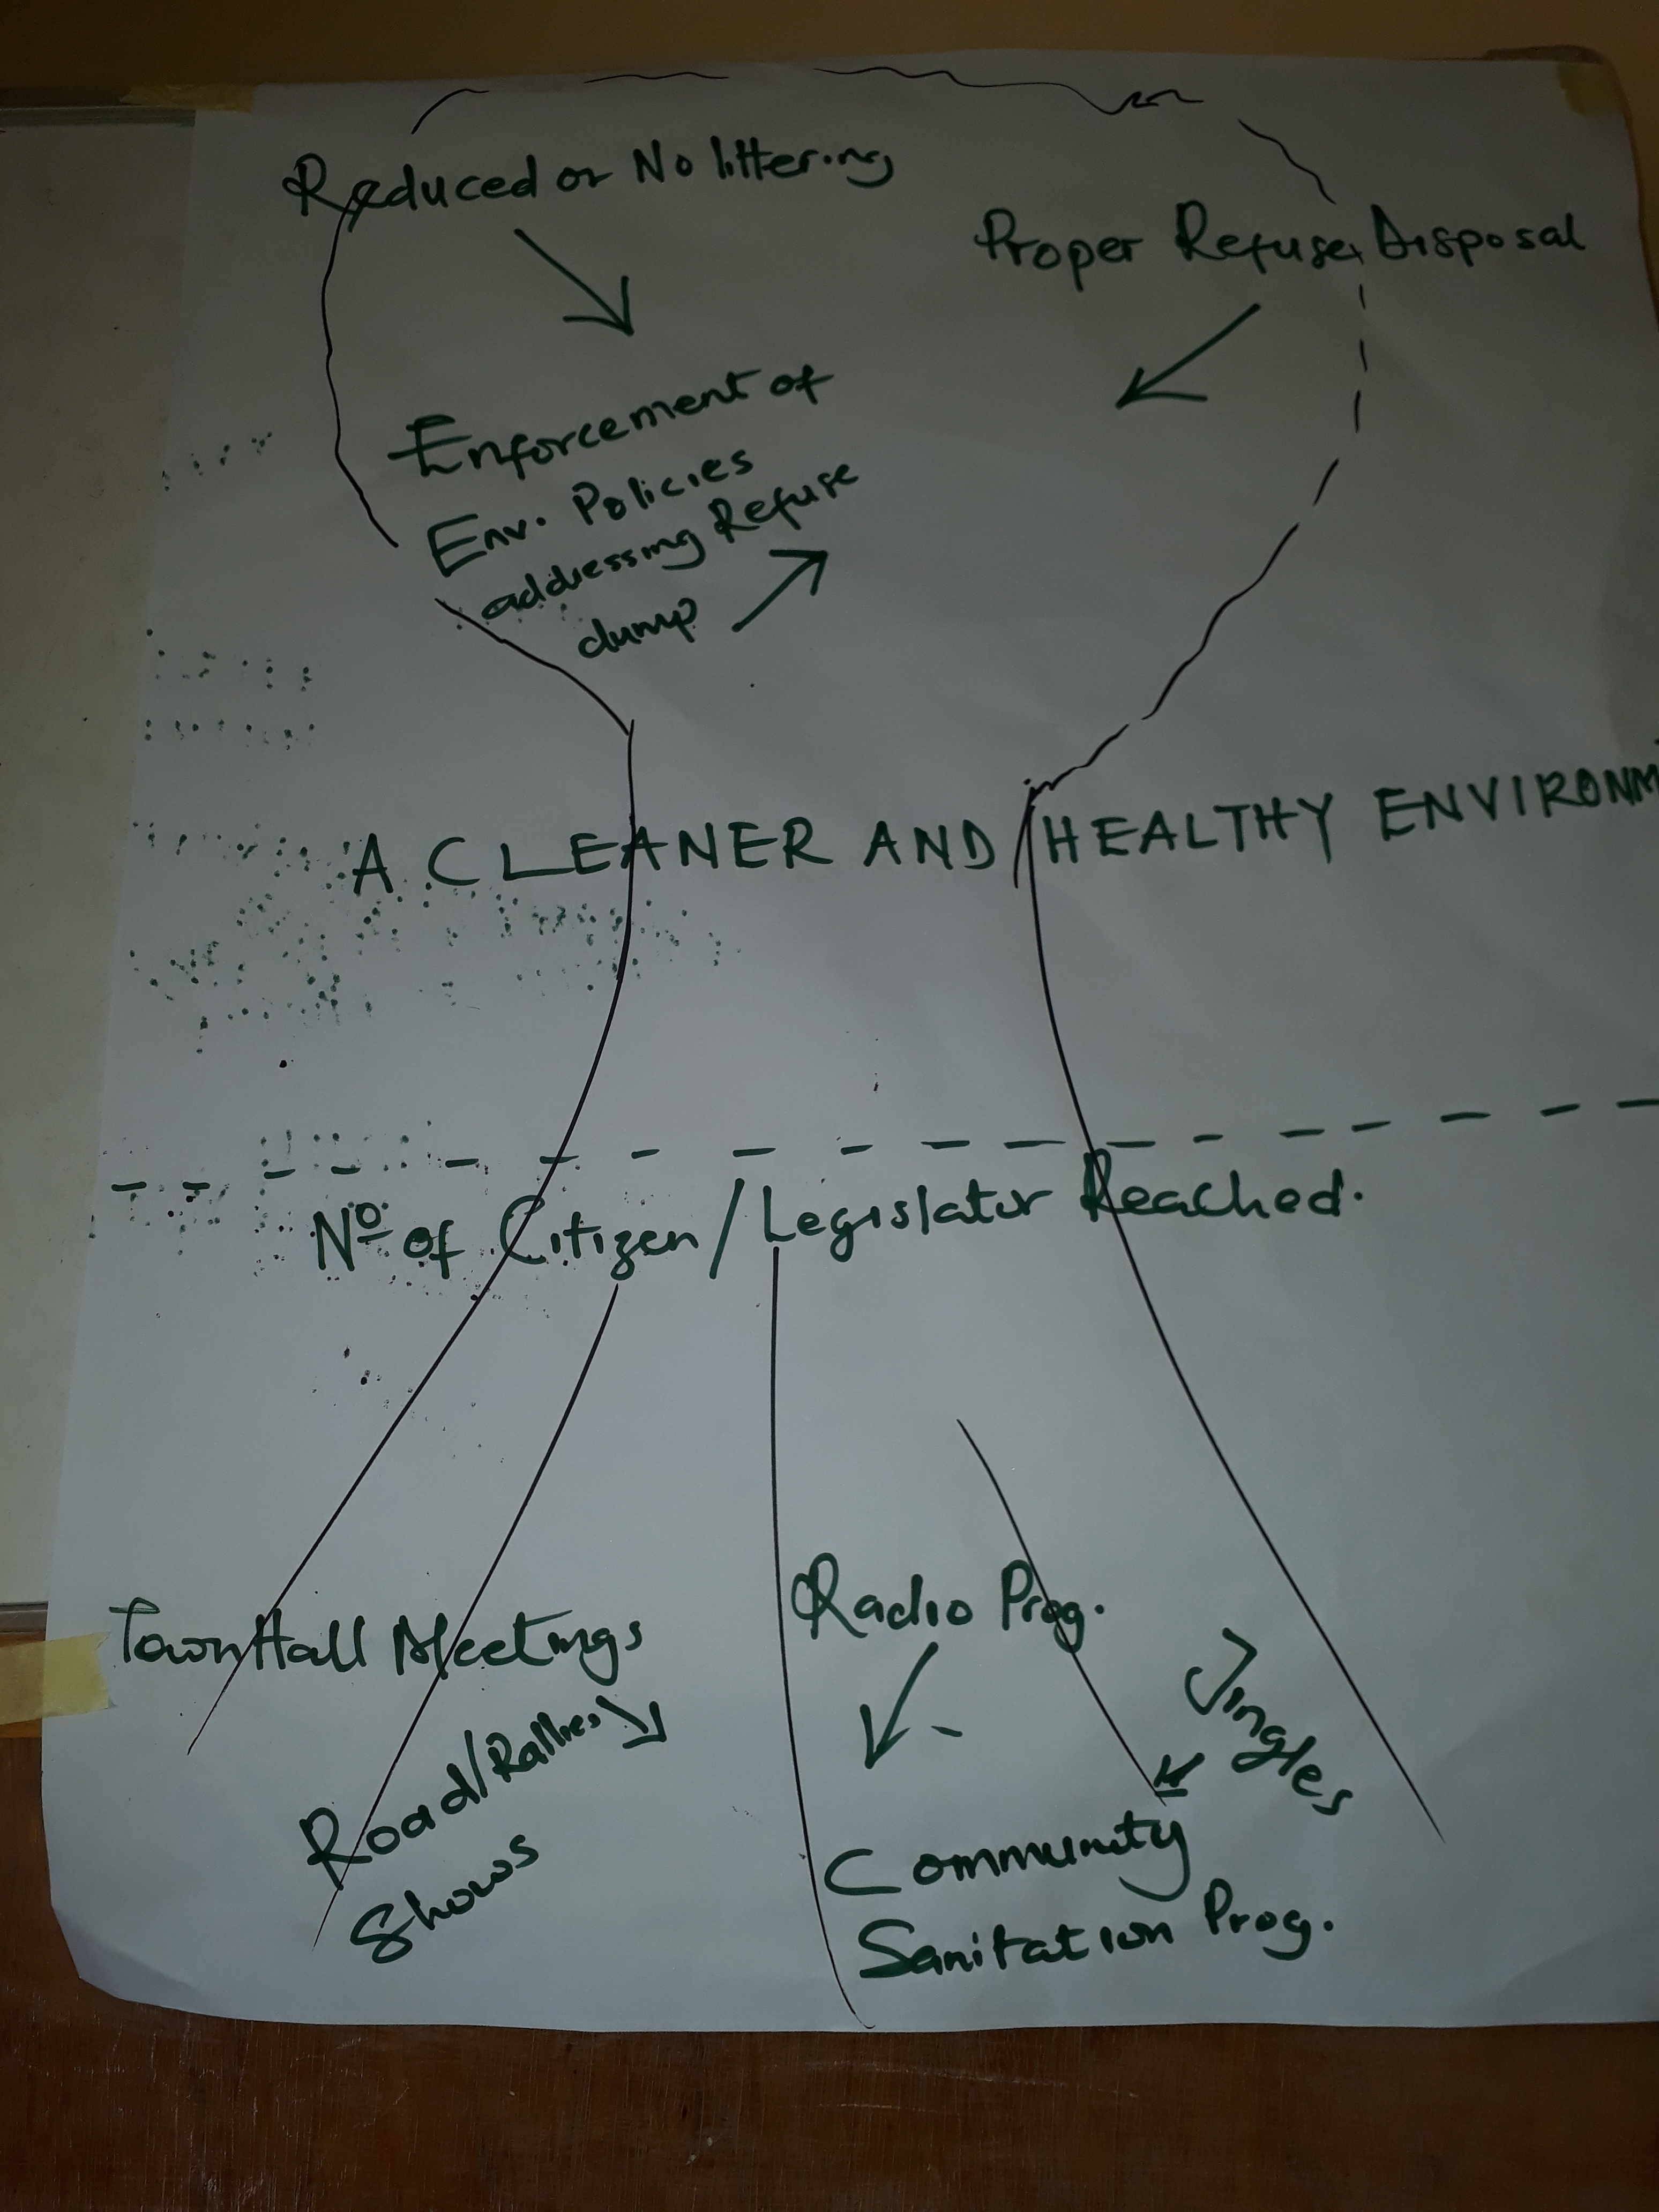 Reduced or No littering
Proper Refuse Disposal
Enforcement of
Env. Policies
addressing Refuse
dump
A CLEANER AND HEALTHY ENVIRONM
Nº of Citizen/Legislator Reached.
Town Hall Meetings
Road/Rallies
Shows
Radio Prog.
Jingles
Community
Sanitation Prog.